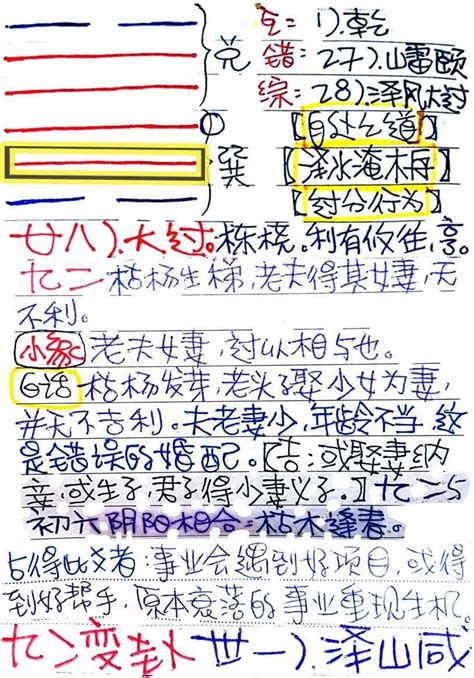 互: 1).乾
兑 错: 27).山雷颐
综: 28).泽风大过
① 【自处之道】
巽 【泽水淹木舟】
【过分行为】
廿八).大过。栋桡。利有攸往,亨。
九二 枯杨生稊,老夫得其女妻,无
不利。
小象 老夫女妻,过以相与也。
白话 枯杨发芽,老头子娶少女为妻,
并无不吉利。夫老妻少,年龄不当,这
是错误的婚配。【吉:或娶妻纳
妾,或生子,君子得少妻义子。】九二与
初六阴阳相合=枯木逢春。
占得此爻者:事业会遇到好项目,或得
到好帮手,原本衰落的事业重现生机。
九二变卦 卅一).泽山咸